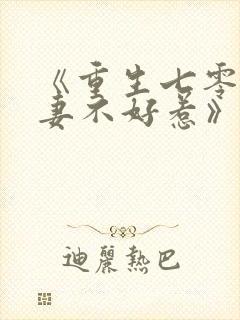 《重生七零
妻不好惹》
迪麗熱巴